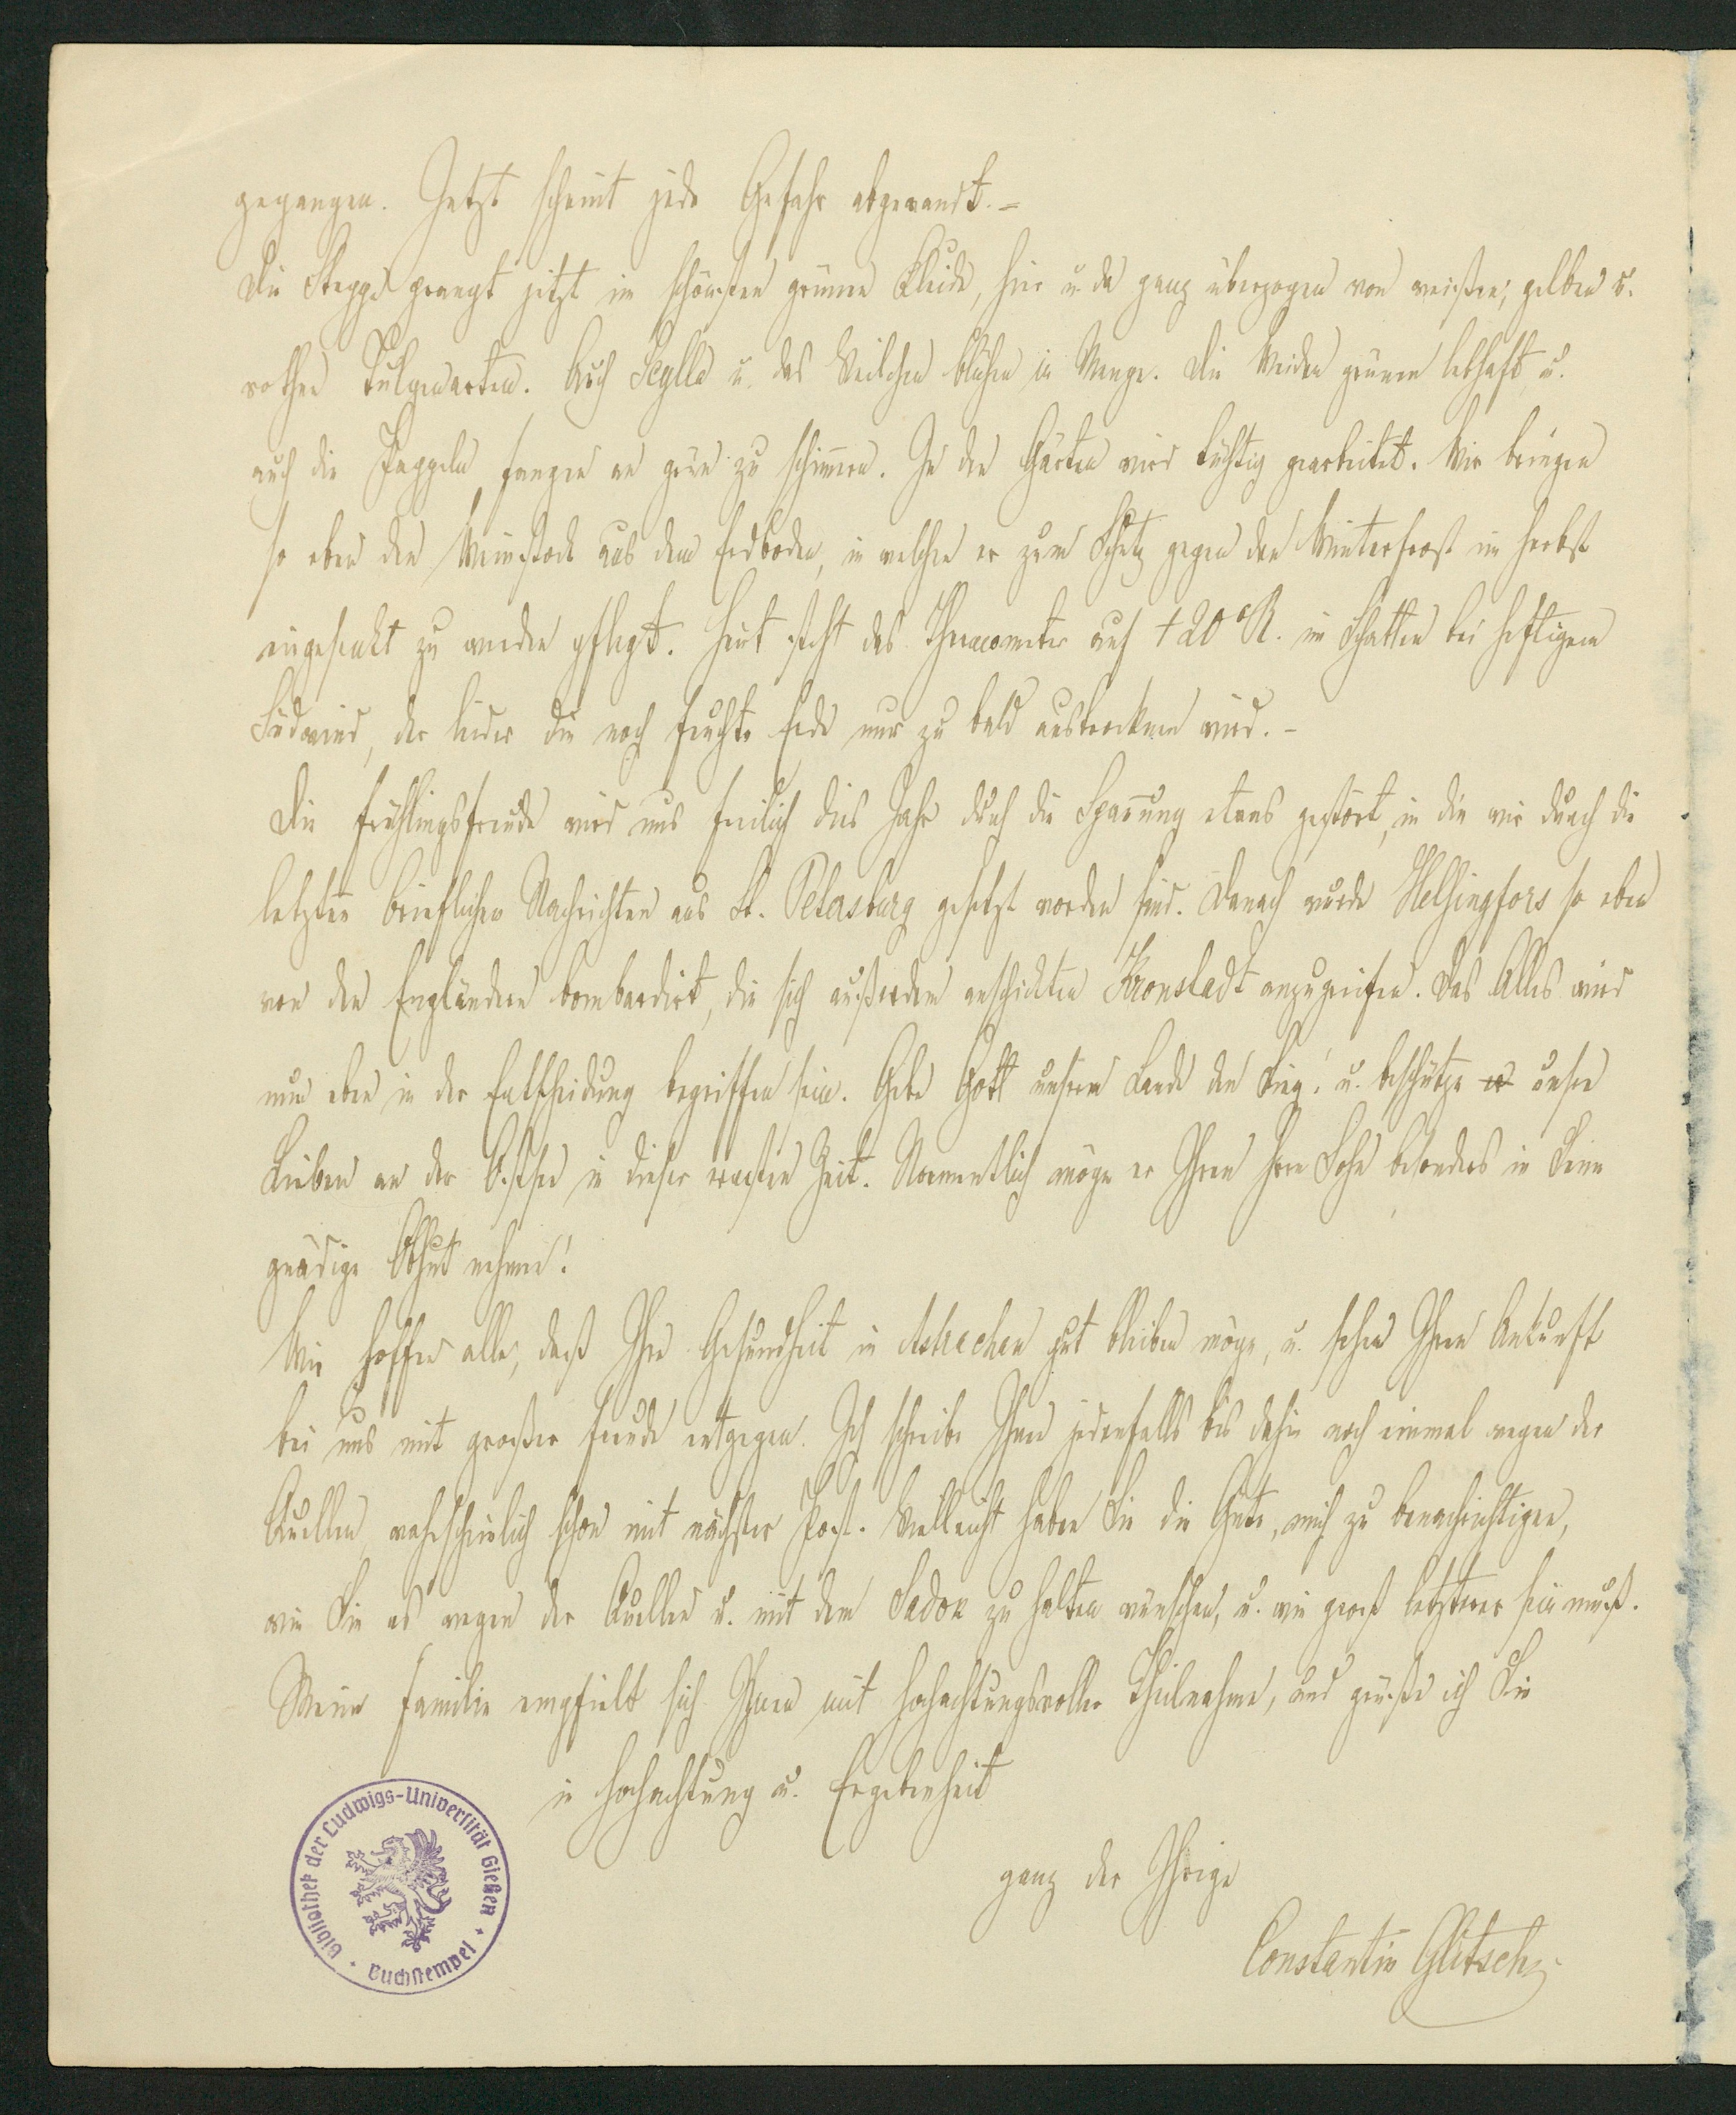 gegangen. Jetzt scheint jede Gefahr abgewandt. –
Die Steppe prangt jetzt im schönsten grünen Kleide, hier u. da ganz überzogen von weißen, gelben u.
rothen Tulpenarten. Auch Scylla u. das Veilchen blühen in Menge. Die Weiden grünen lebhaft, u.
auch die Pappeln fangen an grün zu schimmern. In den Gärten wird tüchtig gearbeitet. Wir bringen
so eben den Weinstock aus dem Erdboden, in welchen er zum Schutz gegen den Winterfrost im Herbst
eingesenkt zu werden pflegt. Heut steht das Thermometer auf +20°R. im Schatten bei heftigem
Südwind, der leider die noch feuchte Erde nur zu bald austrocknen wird. –
Die Frühlingsfreude wird uns freilich dies Jahr durch die Spannung etwas gestört, in die wir durch die
letzten brieflichen Nachrichten aus St. Petersburg gesetzt worden sind. Danach wurde Helsingfors so eben
von den Engländern bombardirt, die sich außerdem anschickten Kronstadt anzugreifen. Das Alles wird
nun eben in der Entscheidung begriffen sein. Gebe Gott unserm Lande den Sieg! u. beschütze unsre
Lieben an der Ostsee in dieser ernsten Zeit. Namentlich möge er Ihren Herrn Sohn besonders in Seine
gnädige Obhut nehmen!
Wir hoffen alle, daß Ihre Gesundheit in Astrachan gut bleiben möge, u. sehen Ihrer Ankunft
bei uns mit großer Freude entgegen. Ich schreibe Ihnen jedenfalls bis dahin noch einmal wegen der
Quellen, wahrscheinlich schon mit nächster Post. Vielleicht haben Sie die Güte, mich zu benachrichtigen,
wie Sie es wegen der Quellen u. mit dem Sadok zu halten wünschen, u. wie groß letzterer sein muß.
Meine Familie empfielt sich Ihnen mit hochachtungsvoller Theilnahme, und grüße ich Sie
in Hochachtung u. Ergebenheit
ganz der Ihrige
Constantin Glitsch
Bibliothek der Ludwigs-Universität Gießen
Buchstempel